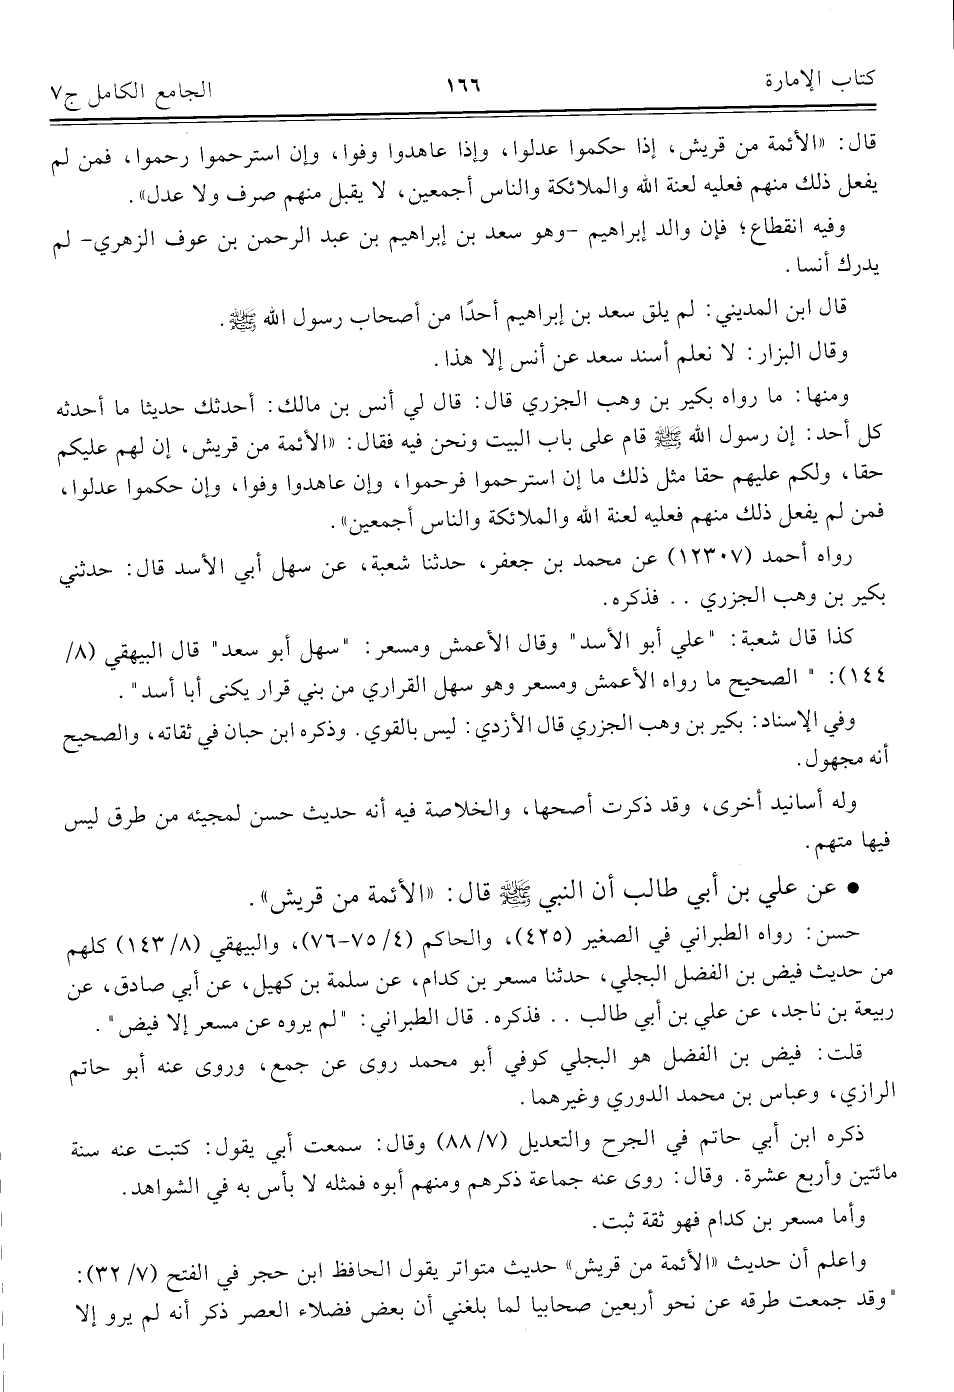 كتاب الإمارة ١٦٦ الجامع الكامل ج٧
قال: «الأئمة من قريش، إذا حكموا عدلوا، وإذا عاهدوا وفوا، وإن استرحموا رحموا، فمن لم
يفعل ذلك منهم فعليه لعنة الله والملائكة والناس أجمعين، لا يقبل منهم صرف ولا عدل».
وفيه انقطاع؛ فإن والد إبراهيم -وهو سعد بن إبراهيم بن عبد الرحمن بن عوف الزهري- لم
يدرك أنسا.
قال ابن المديني: لم يلق سعد بن إبراهيم أحدًا من أصحاب رسول الله ﷺ.
وقال البزار: لا نعلم أسند سعد عن أنس إلا هذا.
ومنها: ما رواه بكير بن وهب الجزري قال: قال لي أنس بن مالك: أحدثك حديثا ما أحدثه
كل أحد: إن رسول الله ﷺ قام على باب البيت ونحن فيه فقال: «الأئمة من قريش، إن لهم عليكم
حقا، ولكم عليهم حقا مثل ذلك ما إن استرحموا فرحموا، وإن عاهدوا وفوا، وإن حكموا عدلوا،
فمن لم يفعل ذلك منهم فعليه لعنة الله والملائكة والناس أجمعين».
رواه أحمد (١٢٣٠٧) عن محمد بن جعفر، حدثنا شعبة، عن سهل أبي الأسد قال: حدثني
بكير بن وهب الجزري .. فذكره.
كذا قال شعبة: "علي أبو الأسد" وقال الأعمش ومسعر: "سهل أبو سعد" قال البيهقي (٨/
١٤٤): " الصحيح ما رواه الأعمش ومسعر وهو سهل القراري من بني قرار يكنى أبا أسد".
وفي الإسناد: بكير بن وهب الجزري قال الأزدي: ليس بالقوي. وذكره ابن حبان في ثقاته، والصحيح
أنه مجهول.
وله أسانيد أخرى، وقد ذكرت أصحها، والخلاصة فيه أنه حديث حسن لمجيئه من طرق ليس
فيها متهم.
• عن علي بن أبي طالب أن النبي ﷺ قال: «الأئمة من قريش».
حسن: رواه الطبراني في الصغير (٤٢٥)، والحاكم (٤/ ٧٥-٧٦)، والبيهقي (٨/ ١٤٣) كلهم
من حديث فيض بن الفضل البجلي، حدثنا مسعر بن كدام، عن سلمة بن كهيل، عن أبي صادق، عن
ربيعة بن ناجد، عن علي بن أبي طالب .. فذكره. قال الطبراني: "لم يروه عن مسعر إلا فيض".
قلت: فيض بن الفضل هو البجلي كوفي أبو محمد روى عن جمع، وروى عنه أبو حاتم
الرازي، وعباس بن محمد الدوري وغيرهما.
ذكره ابن أبي حاتم في الجرح والتعديل (٧/ ٨٨) وقال: سمعت أبي يقول: كتبت عنه سنة
مائتين وأربع عشرة. وقال: روى عنه جماعة ذكرهم ومنهم أبوه فمثله لا بأس به في الشواهد.
وأما مسعر بن كدام فهو ثقة ثبت.
واعلم أن حديث «الأئمة من قريش» حديث متواتر يقول الحافظ ابن حجر في الفتح (٧/ ٣٢):
"وقد جمعت طرقه عن نحو أربعين صحابيا لما بلغني أن بعض فضلاء العصر ذكر أنه لم يرو إلا